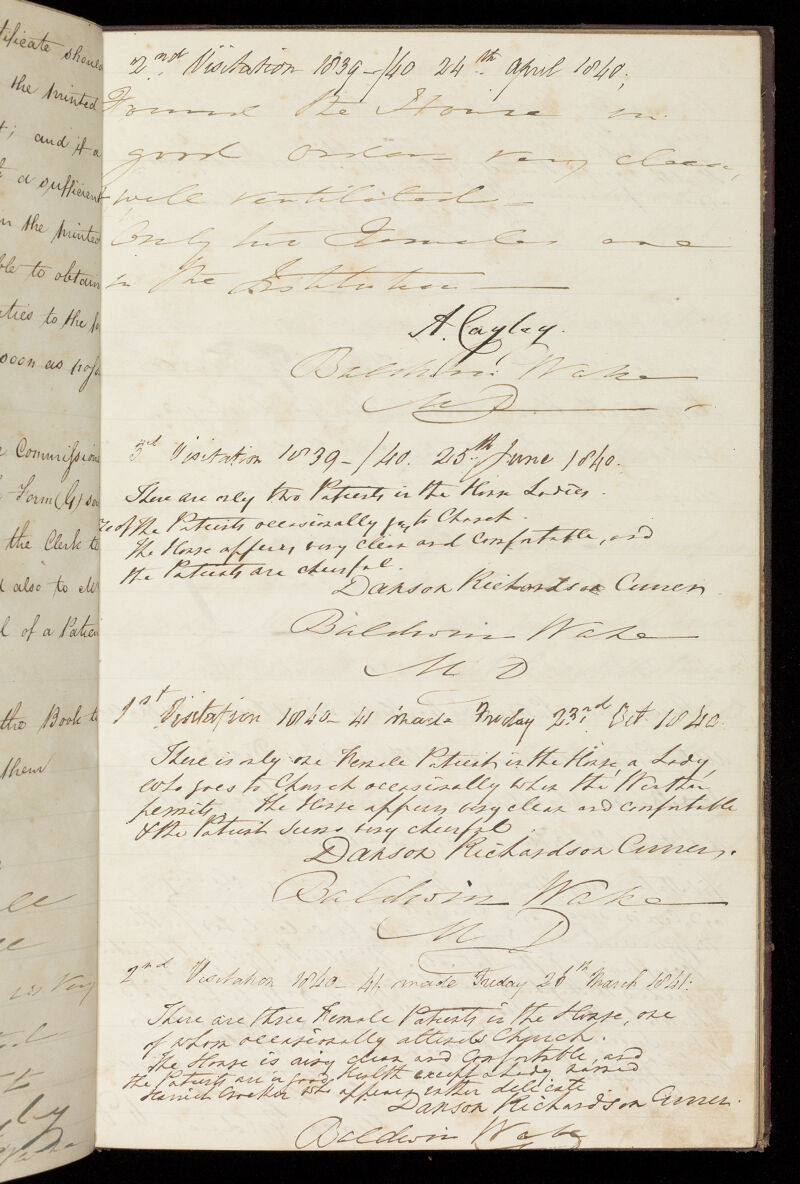 tificate should
the printed
t; and if a
a sufficient
in the printed
ble to obtain
ties to the
soon as
Commission
Form (G)
the Clerk to
also to
l of a Patien
the Book t
them
very
2nd Visitation 1839-/40 24th April 1840;
Found the House in
good order very clean,
well ventilated -
Only two Females are
in the Institution
A. Cayley.
Baldwin Wake
M D
3rd Visitation 1839-/40. 25th June 1840.
There are only two Patients in the House Ladies.
of the Patients occasionally to Church.
The House appears very clean and comfortable, and
the Patients are cheerful.
Danson Richardson Currer.
Baldwin Wake
M D
1st Visitation 1840-41 made Friday 23rd Oct 1840.
There is only one Female Patient in the House, a Lady
who goes to Church occasionally when the Weather
permits. The House appears very clean and comfortable
& the Patient seems very cheerful.
Danson Richardson Currer.
Baldwin Wake
M D
2nd Visitation 1840-41. made Friday 26th March 1841:
There are three Female Patients in the House, one
of whom occasionally attends Church.
The House is airy clean and Comfortable, and
the Patients are in good Health except a Lady named
Harriet Crocker who appears rather delicate
Danson Richardson Currer.
Baldwin Wake